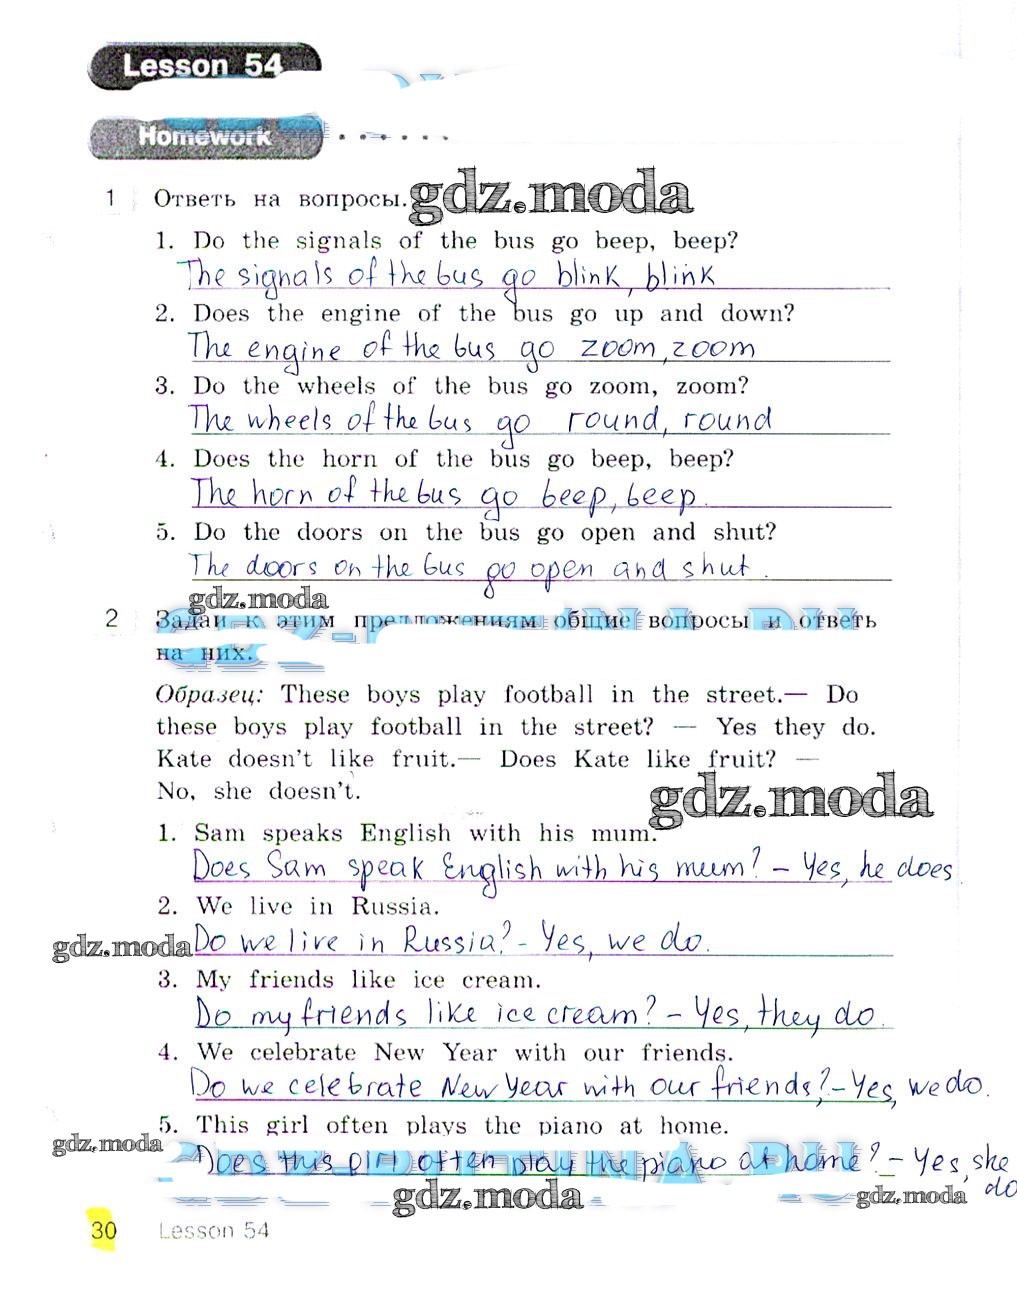 Lesson 54
Homework
1 Ответь на вопросы. gdz.moda
1. Do the signals of the bus go beep, beep?
The signals of the bus go blink, blink
2. Does the engine of the bus go up and down?
The engine of the bus go zoom, zoom
3. Do the wheels of the bus go zoom, zoom?
The wheels of the bus go round, round
4. Does the horn of the bus go beep, beep?
The horn of the bus go beep, beep.
5. Do the doors on the bus go open and shut?
The doors on the bus go open and shut.
gdz.moda
2 Задай к этим предложениям общие вопросы и ответь
на них.
Образец: These boys play football in the street.— Do
these boys play football in the street? — Yes they do.
Kate doesn't like fruit.— Does Kate like fruit? —
No, she doesn't.
gdz.moda
1. Sam speaks English with his mum.
Does Sam speak English with his mum? – Yes, he does.
2. We live in Russia.
gdz.moda Do we live in Russia? - Yes, we do.
3. My friends like ice cream.
Do my friends like ice cream? – Yes, they do.
4. We celebrate New Year with our friends.
Do we celebrate New Year with our friends? – Yes, we do.
5. This girl often plays the piano at home.
gdz.moda Does this girl often play the piano at home? – Yes, she
do
gdz.moda gdz.moda
30 Lesson 54